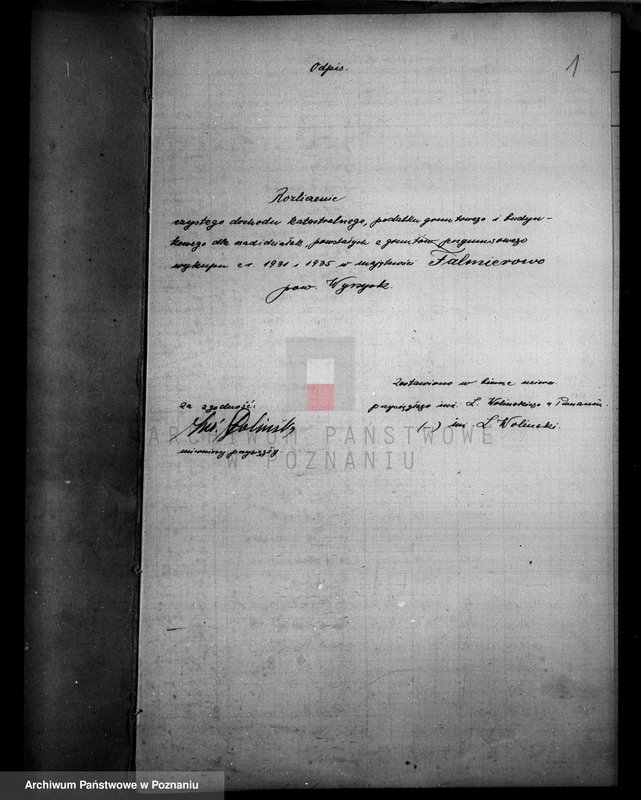 Odpis.
1
Rozliczenie
czystego dochodu katastralnego, podatku gruntowego i budyn-
kowego dla nadziałek, powstałych z gruntów przymusowego
wykupu z r. 1931 i 1935 w majętności Falmierowo
pow. Wyrzysk.
Zestawiono w biurze miern.
przysięgłego inż. L. Wolińskiego w Poznaniu.
(-) inż. L. Woliński.
Za zgodność:
Inż. Woliński
mierniczy przysięgły
ARCHIWUM PAŃSTWOWE
W POZNANIU
Archiwum Państwowe w Poznaniu